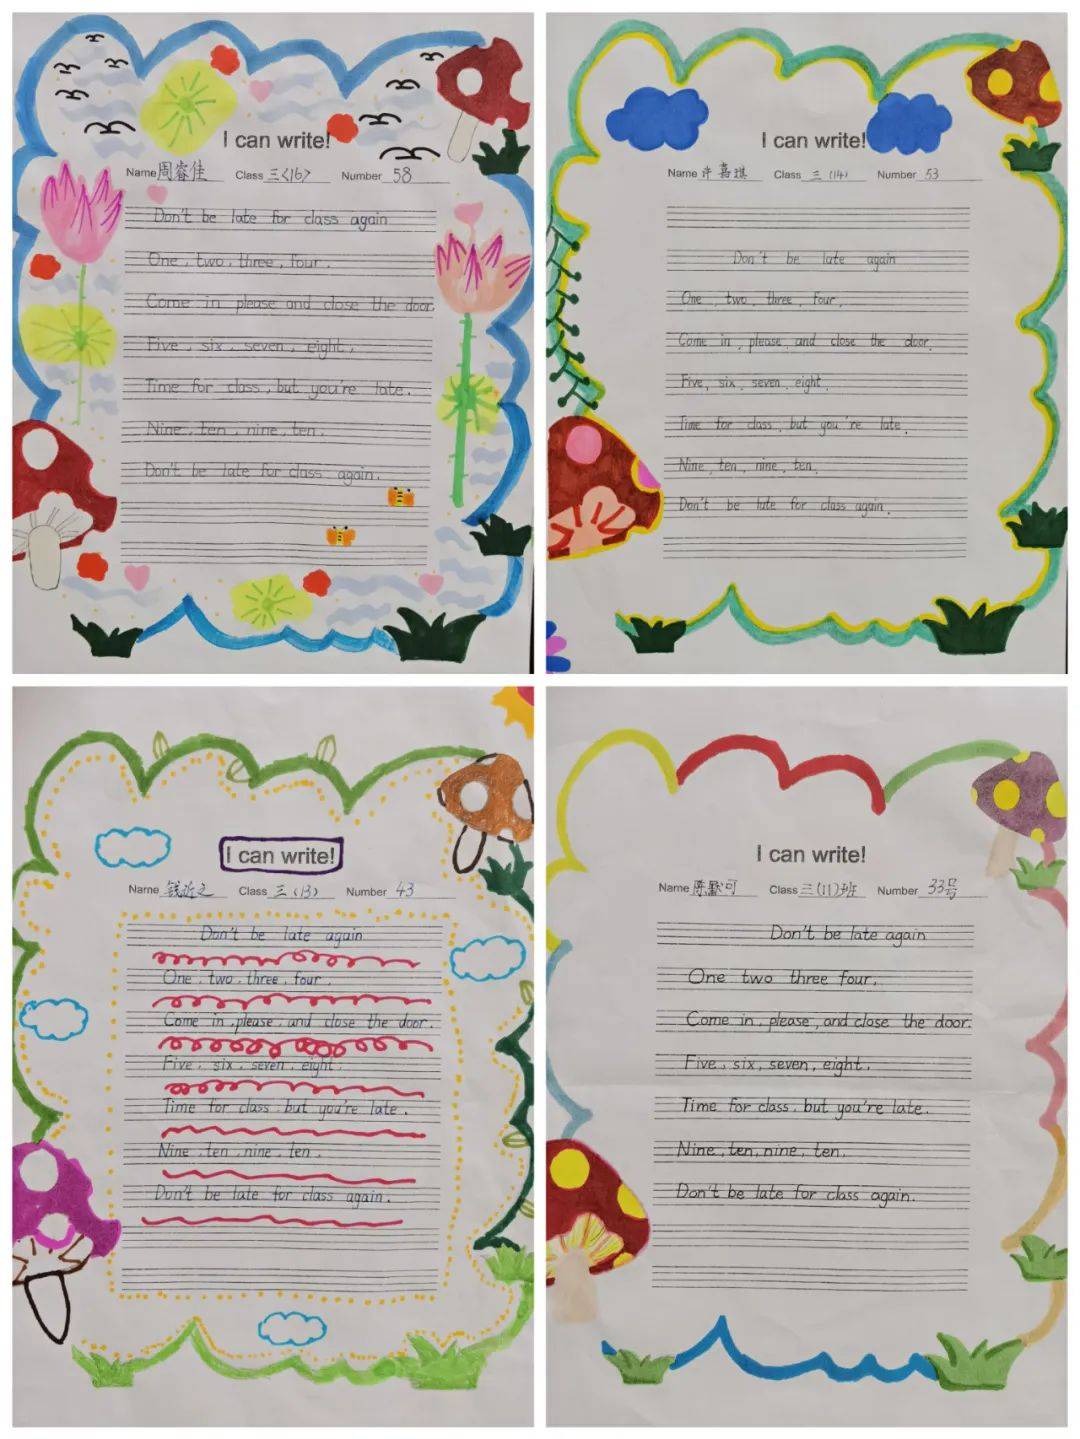 I can write!
Name 周睿佳 Class 三〈16〉 Number 58
Don't be late for class again
One, two, three, four.
Come in please and close the door.
Five, six, seven, eight,
Time for class, but you're late.
Nine, ten, nine, ten.
Don't be late for class again.
I can write!
Name 许嘉琪 Class 三(14) Number 53
Don't be late again
One, two, three, four,
Come in, please, and close the door.
Five, six, seven, eight,
Time for class, but you're late.
Nine, ten, nine, ten.
Don't be late for class again.
I can write!
Name 钱近之 Class 三(13) Number 43
Don't be late again
One, two, three, four,
Come in, please, and close the door.
Five, six, seven, eight,
Time for class, but you're late.
Nine, ten, nine, ten,
Don't be late for class again.
I can write!
Name 陈默可 Class 三(11)班 Number 33号
Don't be late again
One two three four,
Come in, please, and close the door.
Five, six, seven, eight,
Time for class, but you're late.
Nine, ten, nine, ten,
Don't be late for class again.